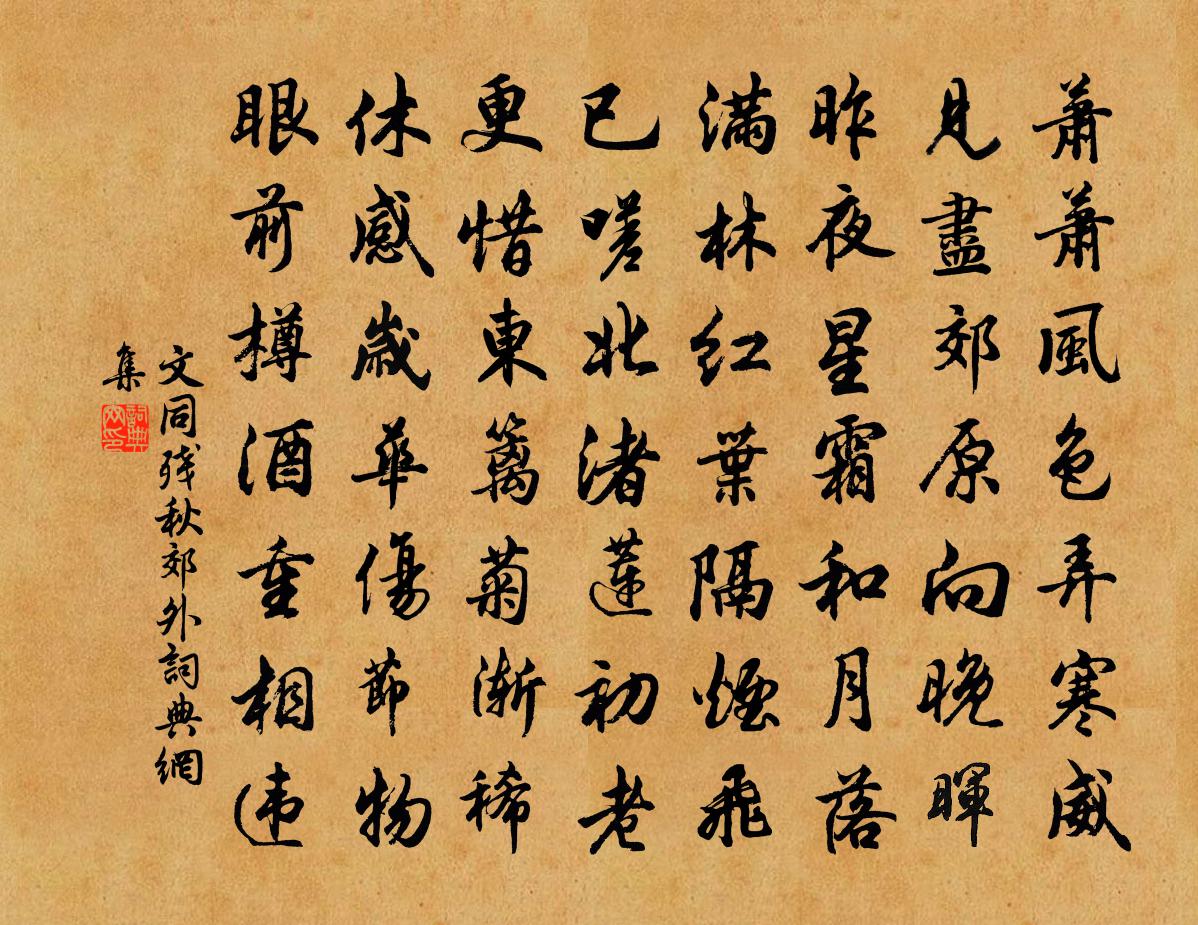 蕭蕭風色弄寒威
見盡郊原向晚暉
昨夜星霜和月落
滿林紅葉隔煙飛
已嗟北渚蓮初老
更惜東籬菊漸稀
休感歲華傷節物
眼前樽酒重相違
文同残秋郊外詞典網
集
詞典网印